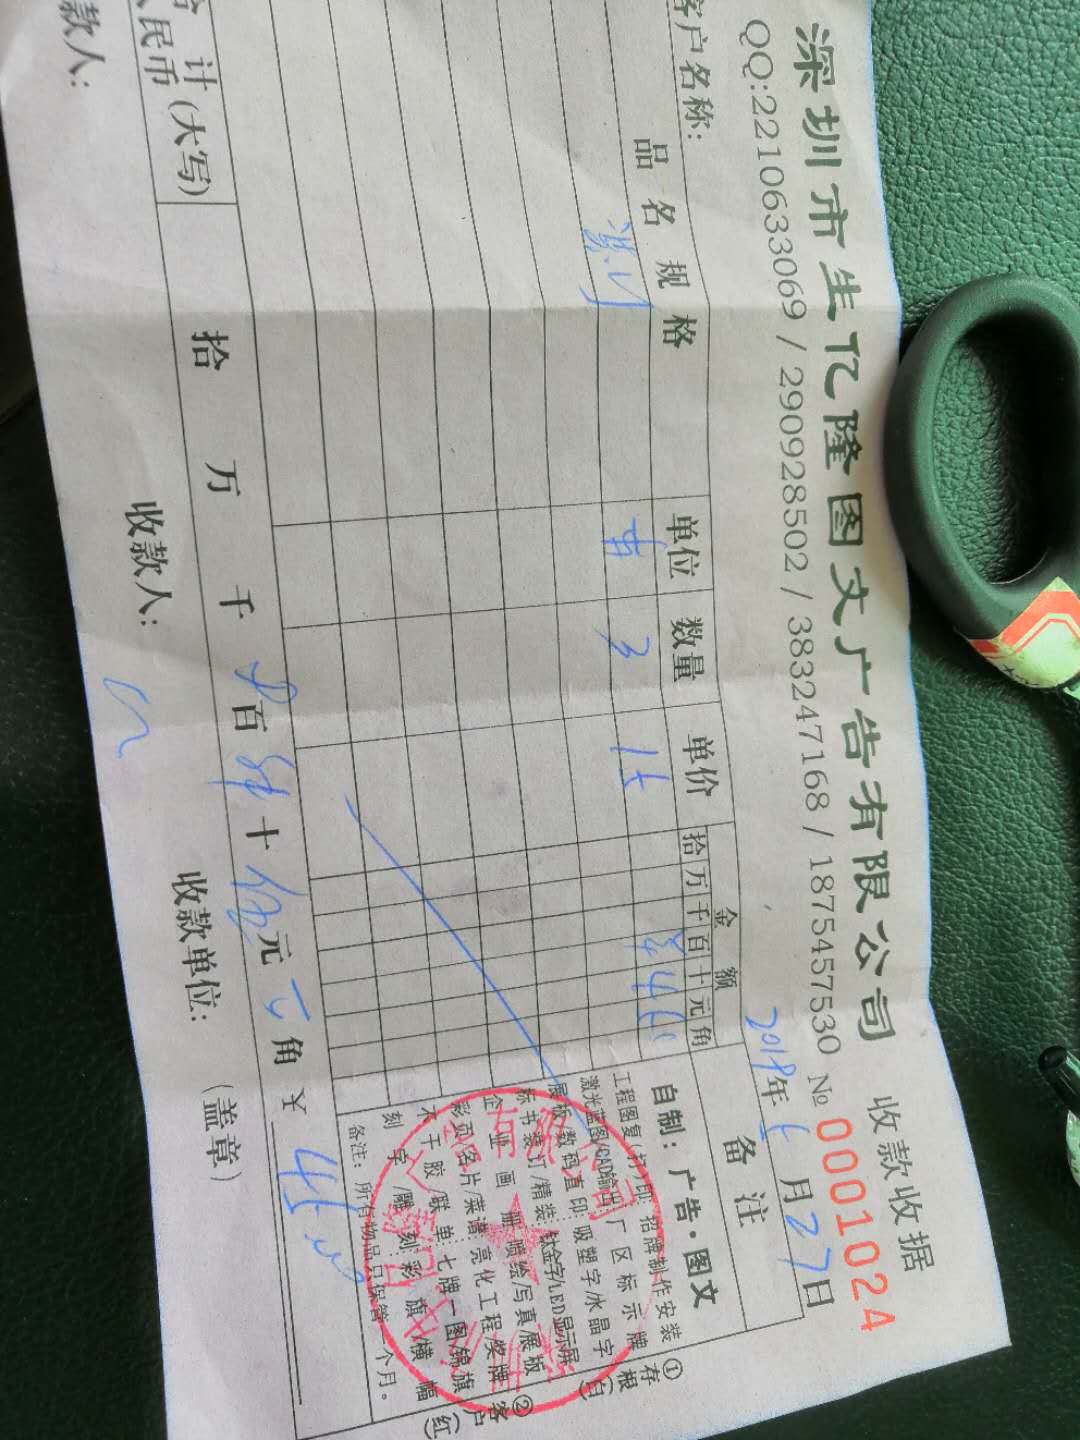 深圳市生亿隆图文广告有限公司
收款收据
QQ:2210633069 / 290928502 / 383247168 / 1875457530
№ 0001024
客户名称:
2018年 月27日
品名规格
单位
数量
单价
金额
拾万千百十元角
备注
3
15
¥45
自制：广告·图文
工程图复(打)印：招牌制作安装
激光蓝图/CAD输出：厂区标示牌
展板/数码直印：吸塑字/水晶字
标书装订/精装：钛金字/LED显示屏
企业画册：喷绘/写真/展板
彩页/名片/菜谱：亮化工程/奖牌
不干胶联单：七牌一图/锦旗
刻字/雕刻：彩旗/横幅
备注：所有物品只保管一个月。
①存根(白)
②客户(红)
合计
人民币(大写)
拾 万 千 百 肆十伍元 角 ¥ 45
收款人:
收款人:
收款单位:
(盖章)